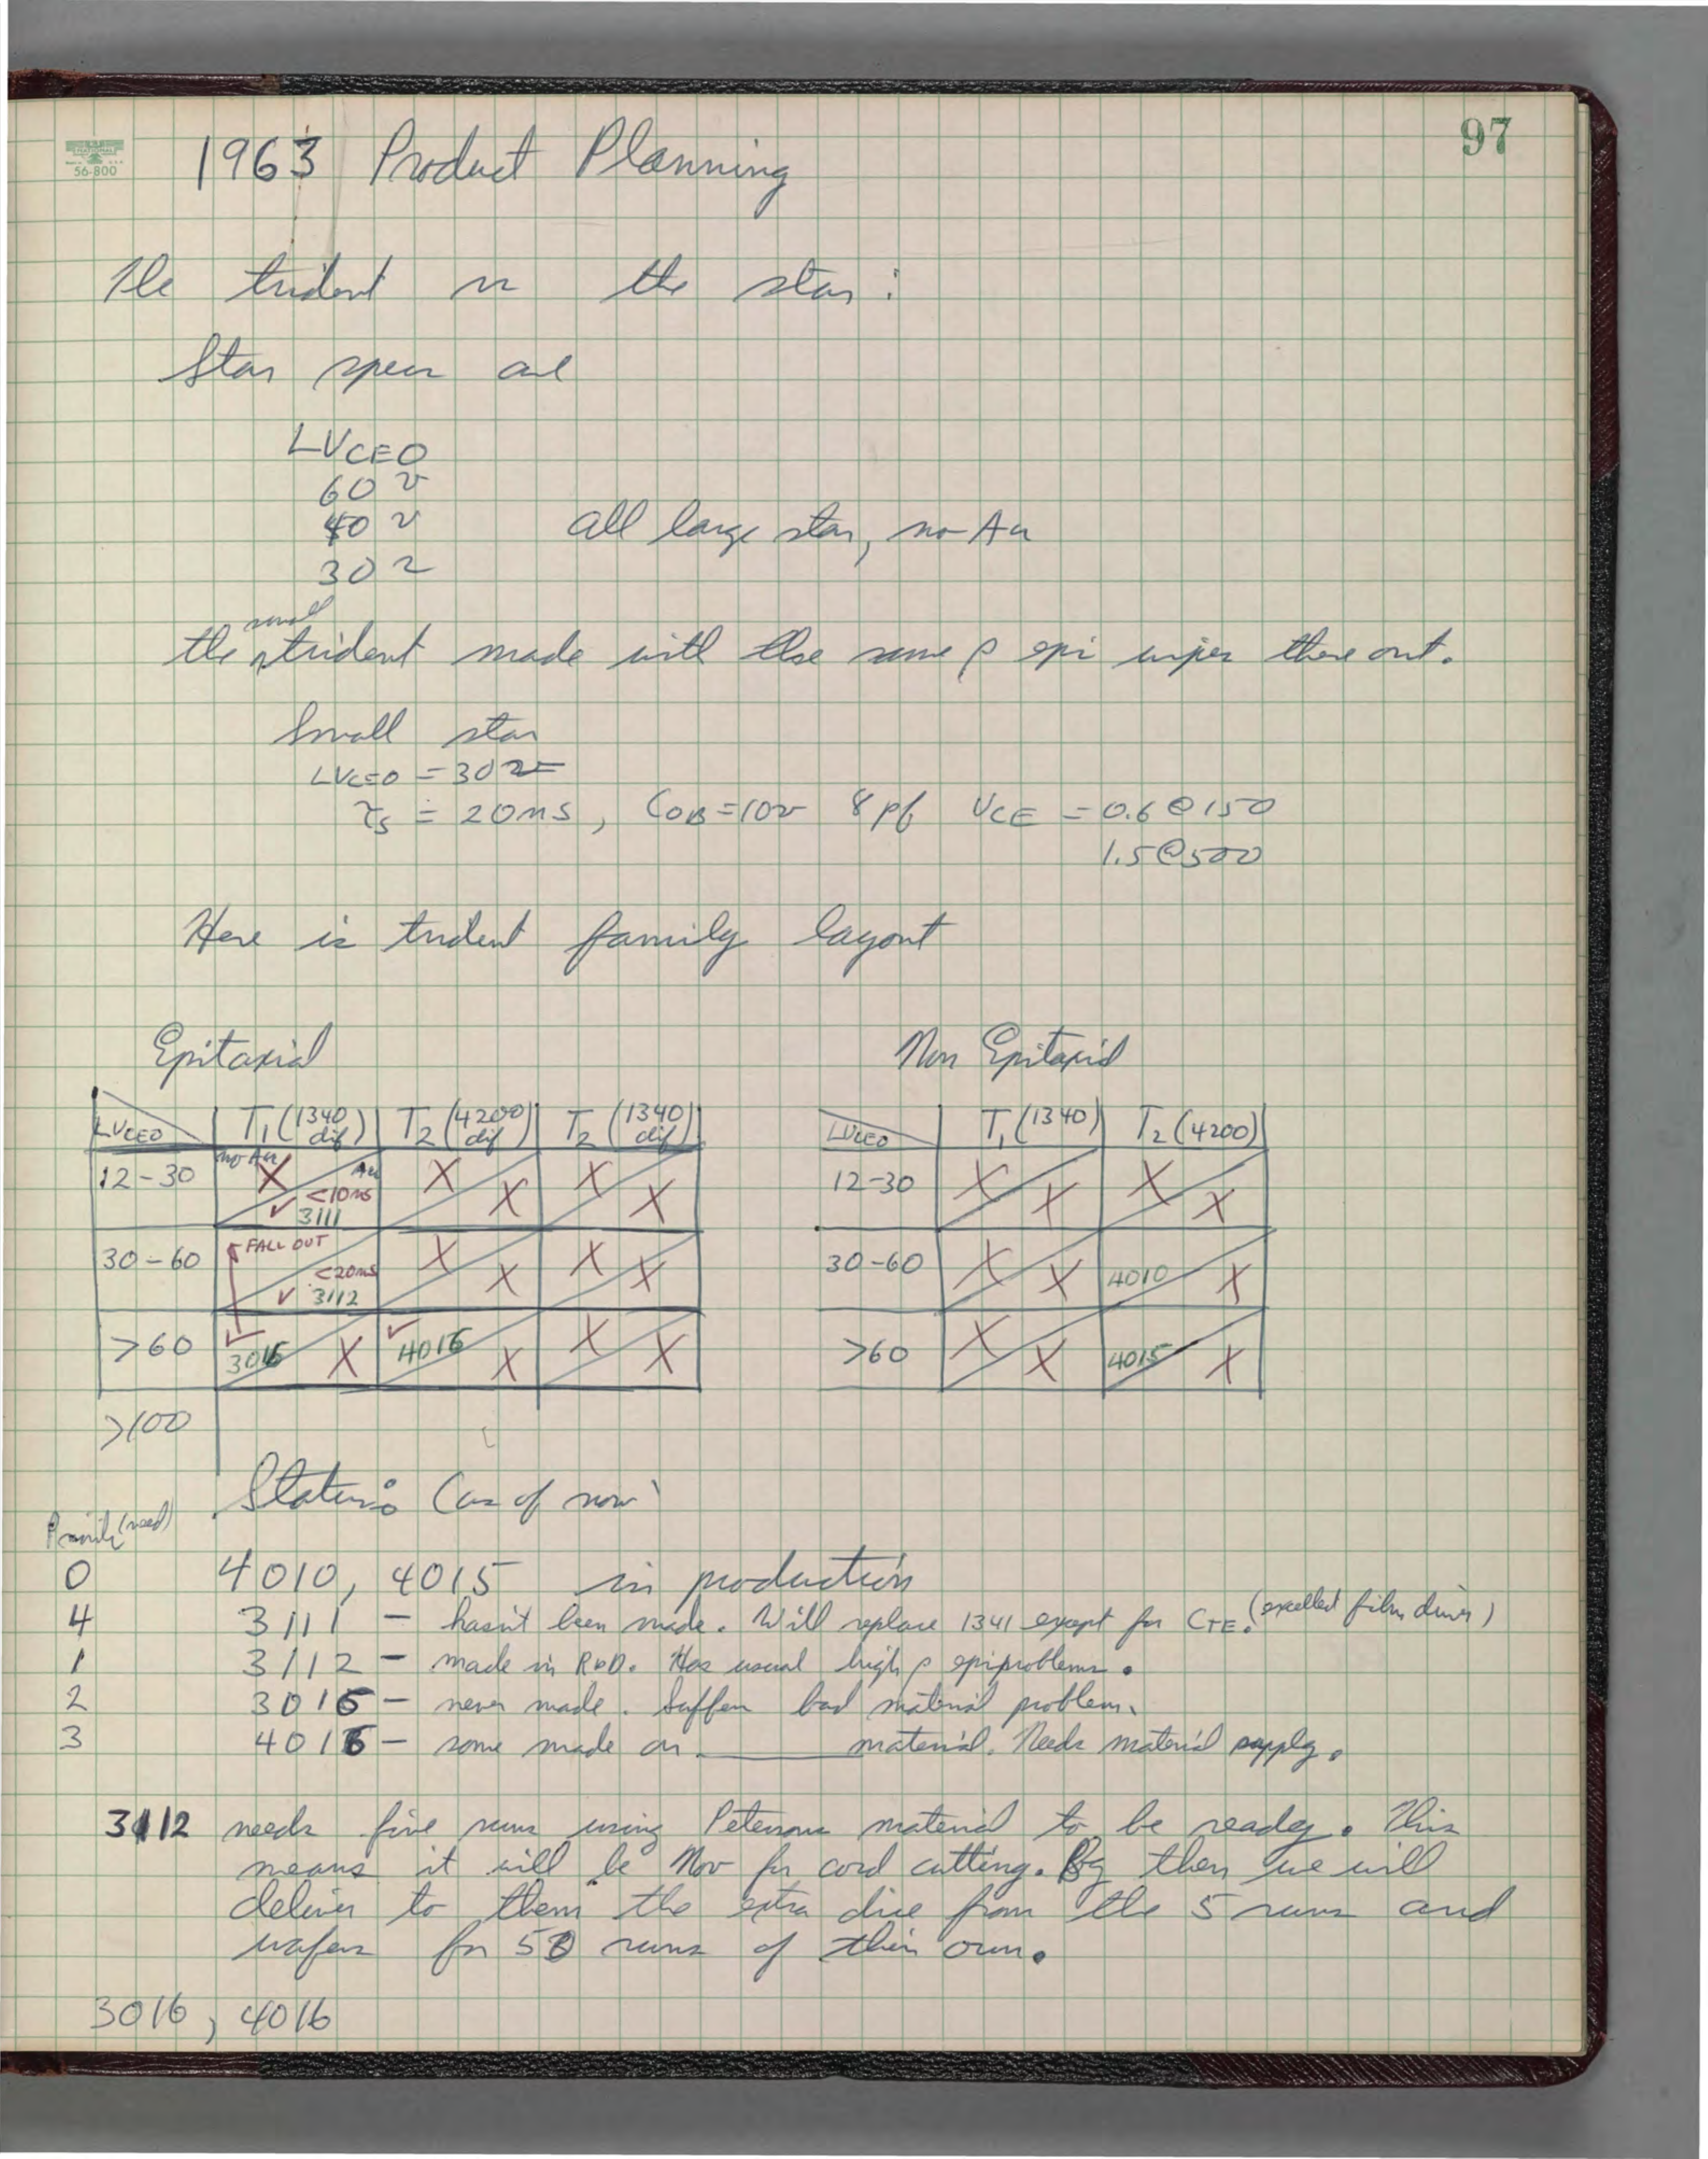 97
NATIONAL
56-800
1963 Product Planning
The trident vs the star:
Star specs are
LVCEO
60 v
40 v all large star, no Au
30 v
small
the trident made with the same ρ epi wipes these out.
Small star
LVCEO = 30v
τs ≐ 20ns, COB=10v 8pf VCE = 0.6 @ 150
1.5 @ 500
Here is trident family layout
Epitaxial Non Epitaxial
LVCEO T1 (1340 dif) T2 (4200 dif) T2 (1340 dif) LVCEO T1 (1340) T2 (4200)
12-30 no Au X Au <10ns ✓ 3111 X X X X 12-30 X X X X
30-60 FALL OUT <20ns ✓ 3112 X X X X 30-60 X X 4010 X
>60 ✓ 3016 X ✓ 4016 X X X >60 X X 4015 X
>100
Status: (as of now)
Priority (need)
0 4010, 4015 in production
4 3111 - hasn't been made. Will replace 1341 except for CTE. (excellent film driver)
1 3112 - made in R&D. Has usual high ρ epi problems.
2 3016 - never made. Suffers bad material problem.
3 4016 - some made on ______ material. Needs material supply.
3112 needs five runs using Petersons material to be ready. This
means it will be Nov for cord cutting. By then we will
deliver to them the extra dice from the 5 runs and
wafers for 50 runs of their own.
3016, 4016